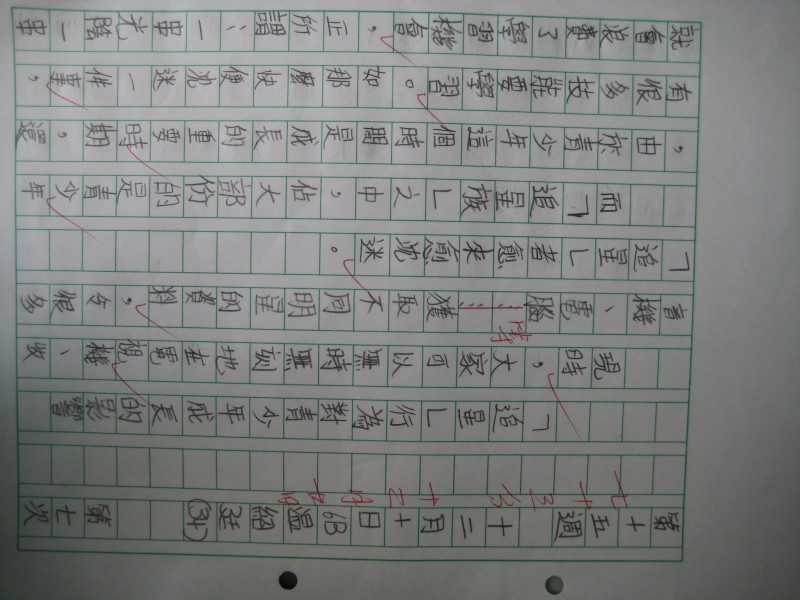 第十五週 十二月十日 6B 溫紹廷 (34) 第七次
「追星」行為對青少年成長的影響
現時，大家可以無時無刻地在電視機、收
音機、電腦……獲取不同明星的資料，令很多
「追星」者愈來愈沈迷。
而「追星族」之中，佔大部份的是青少年
，由於青少年這個時間是成長的重要時期，還
有很多技能要學習。如那麼快便沈迷一件事，
就會浪費了學習機會，正所謂：一串光陰一串
等
七十三分